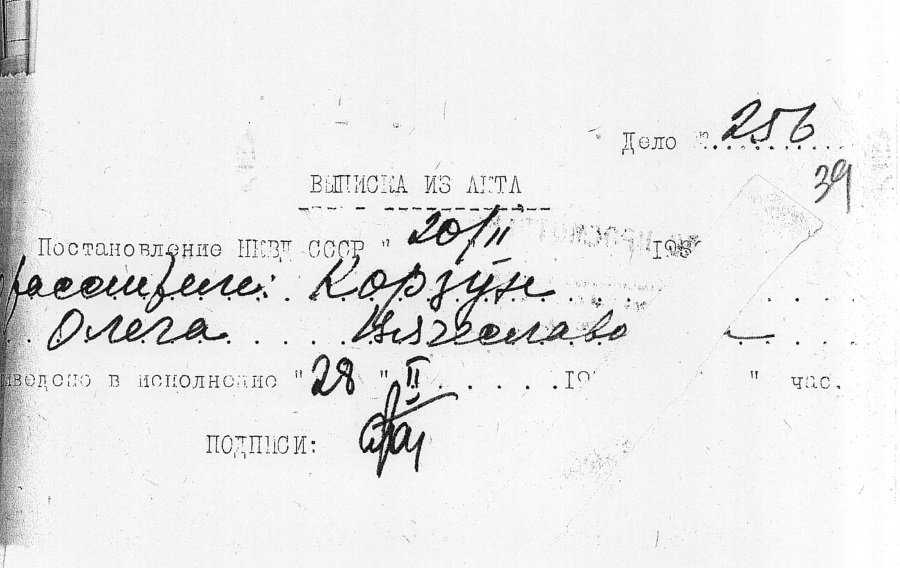 Дело №.256
39
ВЫПИСКА ИЗ АКТА
Постановление НКВД СССР " 20/II " 193
расстреле: Корзун
Олега Вячеславо
ведено в исполнение " 28 " II 19 " час.
ПОДПИСИ: